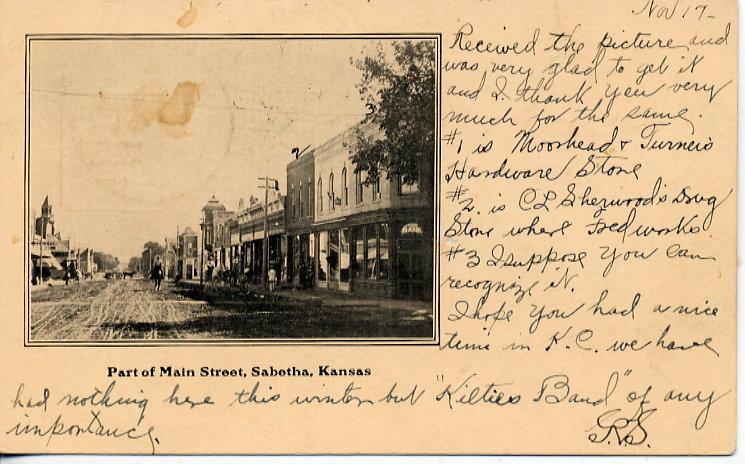 Nov 17-
Received the picture and
was very glad to get it
and I thank you very
much for the same.
#1 is Moorhead & Turner's
Hardware Store
#2. is CL Sherwood's Drug
Store where Fred works
#3 I suppose you can
recognize it.
I hope you had a nice
time in K.C. we have
had nothing here this winter but "Kilties Band" of any
importance.
3
2
Part of Main Street, Sabetha, Kansas